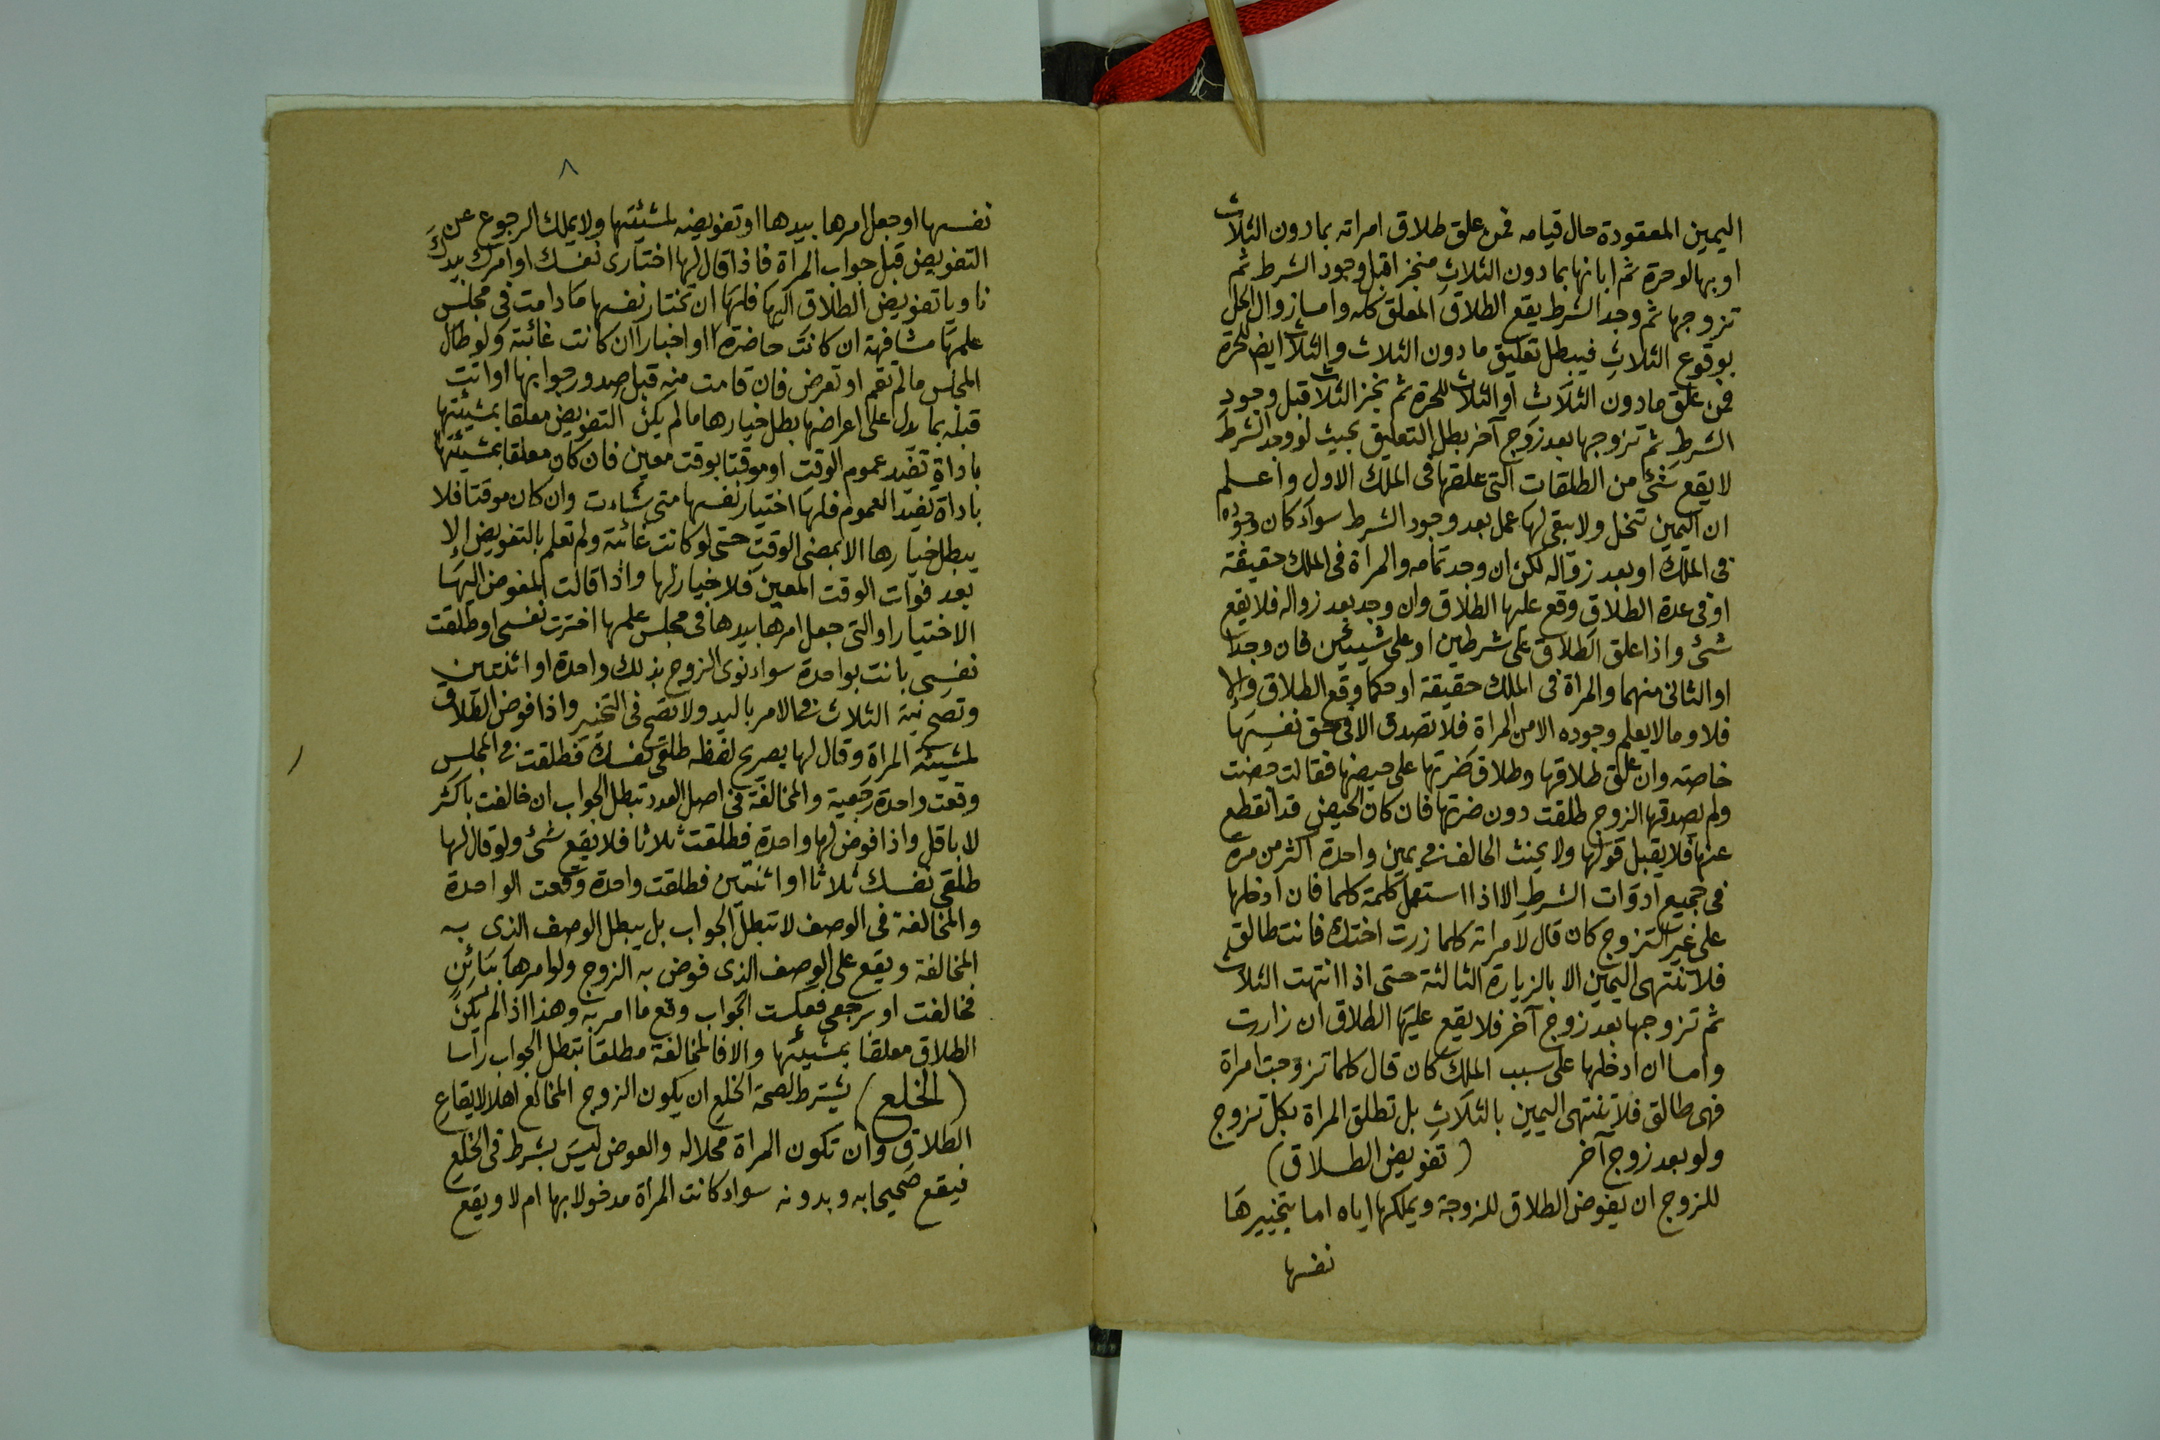 اليمين المعقودة حال قيامه فمن علق طلاق امراته بما دون الثلاث
او بها لوحرة ثم ابانها بما دون الثلاث منجزا قبل وجود الشرط ثم
تزوجها ثم وجد الشرط يقع الطلاق المعلق كله واما زوال الحل
بوقوع الثلاث فيبطل تعليق ما دون الثلاث والثلاث ايضا للحرة
فمن علق ما دون الثلاث او الثلاث للحرة ثم نجز الثلاث قبل وجود
الشرط ثم تزوجها بعد زوج آخر بطل التعليق بحيث لو وجد الشرط
لا يقع شئ من الطلقات التى علقها فى الملك الاول واعلم
ان اليمين تنحل ولا يبقى لها عمل بعد وجود الشرط سواء كان وجوده
فى الملك او بعد زواله لكن ان وجد تمامه والمراة فى الملك حقيقة
او فى عدة الطلاق وقع عليها الطلاق وان وجد بعد زواله فلا يقع
شئ واذا علق الطلاق على شرطين او على شيئين فان وجدا
او الثانى منهما والمراة فى الملك حقيقة او حكما وقع الطلاق والا
فلا وما لا يعلم وجوده الا من المراة فلا تصدق الا فى حق نفسها
خاصته وان علق طلاقها وطلاق ضرتها على حيضها فقالت حضت
ولم يصدقها الزوج طلقت دون ضرتها فان كان الحيض قد انقطع
عنها فلا يقبل قولها ولا يحنث الحالف فى يمين واحدة اكثر من مرة
فى جميع ادوات الشرط الا اذا استعمل كلمة كلما فان ادخلها
على غير التزوج كان قال لامراته كلما زرت اختك فانت طالق
فلا تنتهى اليمين الا بالزيارة الثالثة حتى اذا انتهت الثلاث
ثم تزوجها بعد زوج آخر فلا يقع عليها الطلاق ان زارت
واما ان ادخلها على سبب الملك كان قال كلما تزوجت امراة
فهى طالق فلا تنتهى اليمين بالثلاث بل تطلق المراة بكل تزوج
ولو بعد زوج آخر (تفويض الطلاق)
للزوج ان يفوض الطلاق للزوجة ويملكها اياه اما بتخييرها
نفسها
٨
نفسها او جعل امرها بيدها او تفويضه لمشيئتها ولا يملك الرجوع عن
التفويض قبل جواب المراة فاذا قال لها اختارى نفسك او امرك بيدك
ناويا تفويض الطلاق اليها فلها ان تختار نفسها ما دامت فى مجلس
علمها مشافهة ان كانت حاضرة او اخبارا ان كانت غائبة ولو طال
المجلس ما لم تقم او تعرض فان قامت منه قبل صدور جوابها او اتت
قبله بما يدل على اعراضها بطل خيارها ما لم يكن التفويض معلقا بمشيئتها
باداة تفيد عموم الوقت او موقتا بوقت معين فان كان معلقا بمشيئتها
باداة تفيد العموم فلها اختيار نفسها متى شاءت وان كان موقتا فلا
يبطل خيارها الا بمضى الوقت حتى لو كانت غائبة ولم تعلم بالتفويض الا
بعد فوات الوقت المعين فلا خيار لها واذا قالت المفوض اليها
الاختيار او التى جعل امرها بيدها فى مجلس علمها اخترت نفسى او طلقت
نفسى بانت بواحدة سواء نوى الزوج بذلك واحدة او اثنتين
وتصح نية الثلاث فى الامر باليد ولا تصح فى التخيير واذا فوض الطلاق
لمشيئة المراة وقال لها بصريح لفظه طلقى نفسك فطلقت فى المجلس
وقعت واحدة رجعية والمخالفة فى اصل العدد تبطل الجواب ان خالفت باكثر
لا باقل واذا فوض لها واحدة فطلقت ثلاثا فلا يقع شئ ولو قال لها
طلقى نفسك ثلاثا او اثنتين فطلقت واحدة وقعت الواحدة
والمخالفة فى الوصف لا تبطل الجواب بل يبطل الوصف الذى به
المخالفة ويقع على الوصف الذى فوض به الزوج ولو امرها ببائن
فخالفت او برجعى فعكست الجواب وقع ما امر به وهذا اذا لم يكن
الطلاق معلقا بمشيئتها والا فالمخالفة مطلقا تبطل الجواب راسا
(الخلع) يشترط لصحة الخلع ان يكون الزوج المخالع اهلا لايقاع
الطلاق وان تكون المراة محلا له والعوض ليس بشرط فى الخلع
فيقع صحيحا به وبدونه سواء كانت المراة مدخولا بها ام لا ويقع